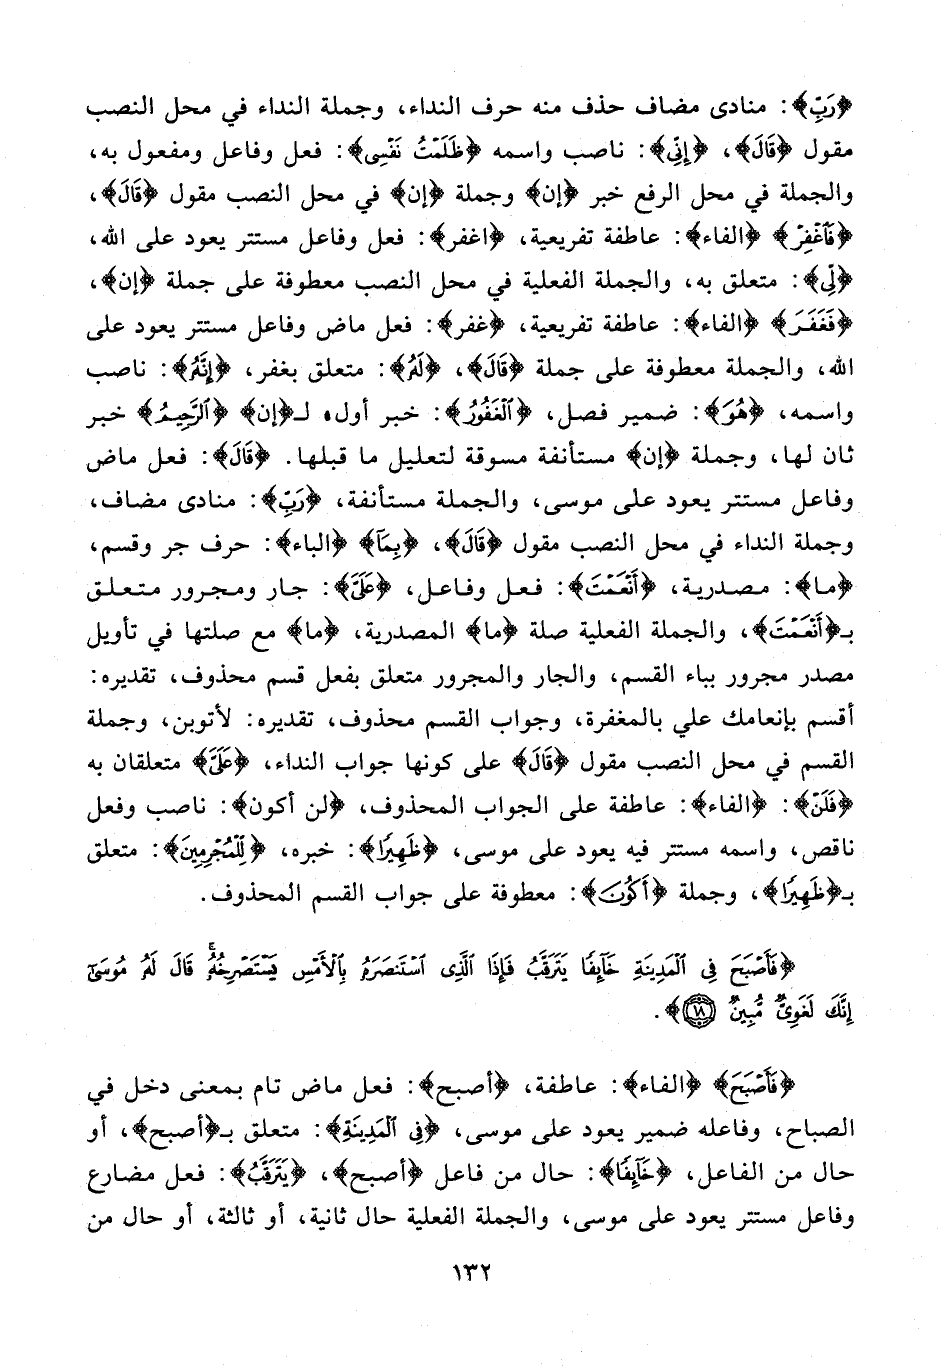 ﴿رَبِّ﴾: منادى مضاف حذف منه حرف النداء، وجملة النداء في محل النصب
مقول ﴿قَالَ﴾، ﴿إِنِّي﴾: ناصب واسمه ﴿ظَلَمْتُ نَفْسِي﴾: فعل وفاعل ومفعول به،
والجملة في محل الرفع خبر ﴿إن﴾ وجملة ﴿إن﴾ في محل النصب مقول ﴿قَالَ﴾،
﴿فَاغْفِرْ﴾ ﴿الفاء﴾: عاطفة تفريعية، ﴿اغفر﴾: فعل وفاعل مستتر يعود على الله،
﴿لِي﴾: متعلق به، والجملة الفعلية في محل النصب معطوفة على جملة ﴿إن﴾،
﴿فَغَفَرَ﴾ ﴿الفاء﴾: عاطفة تفريعية، ﴿غفر﴾: فعل ماض وفاعل مستتر يعود على
الله، والجملة معطوفة على جملة ﴿قَالَ﴾، ﴿لَهُ﴾: متعلق بغفر، ﴿إِنَّهُ﴾: ناصب
واسمه، ﴿هُوَ﴾: ضمير فصل، ﴿الْغَفُورُ﴾: خبر أول، لـ﴿إن﴾ ﴿الرَّحِيمُ﴾ خبر
ثان لها، وجملة ﴿إن﴾ مستأنفة مسوقة لتعليل ما قبلها. ﴿قَالَ﴾: فعل ماض
وفاعل مستتر يعود على موسى، والجملة مستأنفة، ﴿رَبِّ﴾: منادى مضاف،
وجملة النداء في محل النصب مقول ﴿قَالَ﴾، ﴿بِمَآ﴾ ﴿الباء﴾: حرف جر وقسم،
﴿ما﴾: مصدرية، ﴿أَنْعَمْتَ﴾: فعل وفاعل، ﴿عَلَيَّ﴾: جار ومجرور متعلق
بـ﴿أَنْعَمْتَ﴾، والجملة الفعلية صلة ﴿ما﴾ المصدرية، ﴿ما﴾ مع صلتها في تأويل
مصدر مجرور بباء القسم، والجار والمجرور متعلق بفعل قسم محذوف، تقديره:
أقسم بإنعامك علي بالمغفرة، وجواب القسم محذوف، تقديره: لأتوبن، وجملة
القسم في محل النصب مقول ﴿قَالَ﴾ على كونها جواب النداء، ﴿عَلَيَّ﴾ متعلقان به
﴿فَلَنْ﴾: ﴿الفاء﴾: عاطفة على الجواب المحذوف، ﴿لن أكون﴾: ناصب وفعل
ناقص، واسمه مستتر فيه يعود على موسى، ﴿ظَهِيرًا﴾: خبره، ﴿لِّلْمُجْرِمِينَ﴾: متعلق
بـ﴿ظَهِيرًا﴾، وجملة ﴿أَكُونَ﴾: معطوفة على جواب القسم المحذوف.
﴿فَأَصْبَحَ فِي الْمَدِينَةِ خَآئِفًا يَتَرَقَّبُ فَإِذَا الَّذِى اسْتَنصَرَهُ بِالْأَمْسِ يَسْتَصْرِخُهُۥ قَالَ لَهُ مُوسَىٰٓ
إِنَّكَ لَغَوِىٌّ مُّبِينٌ ﴿١٨﴾﴾.
﴿فَأَصْبَحَ﴾ ﴿الفاء﴾: عاطفة، ﴿أصبح﴾: فعل ماض تام بمعنى دخل في
الصباح، وفاعله ضمير يعود على موسى، ﴿فِي الْمَدِينَةِ﴾: متعلق بـ﴿أصبح﴾، أو
حال من الفاعل، ﴿خَآئِفًا﴾: حال من فاعل ﴿أصبح﴾، ﴿يَتَرَقَّبُ﴾: فعل مضارع
وفاعل مستتر يعود على موسى، والجملة الفعلية حال ثانية، أو ثالثة، أو حال من
١٣٢